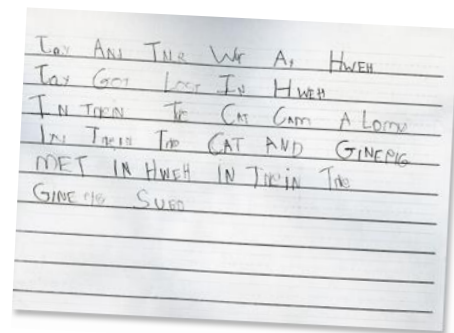 AND THE WR A, HWEH
GOT LOST IN HWEH
IN TREIN THE CAT CAM A LONG
IN TREIN THE CAT AND GINEPIG
MET IN HWEH IN TREIN THE
GINEPIG